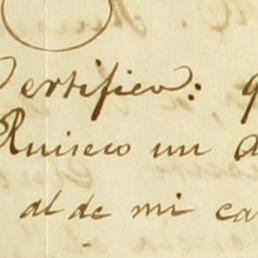 Certifico: q
Ruiseco un d
al de mi ca